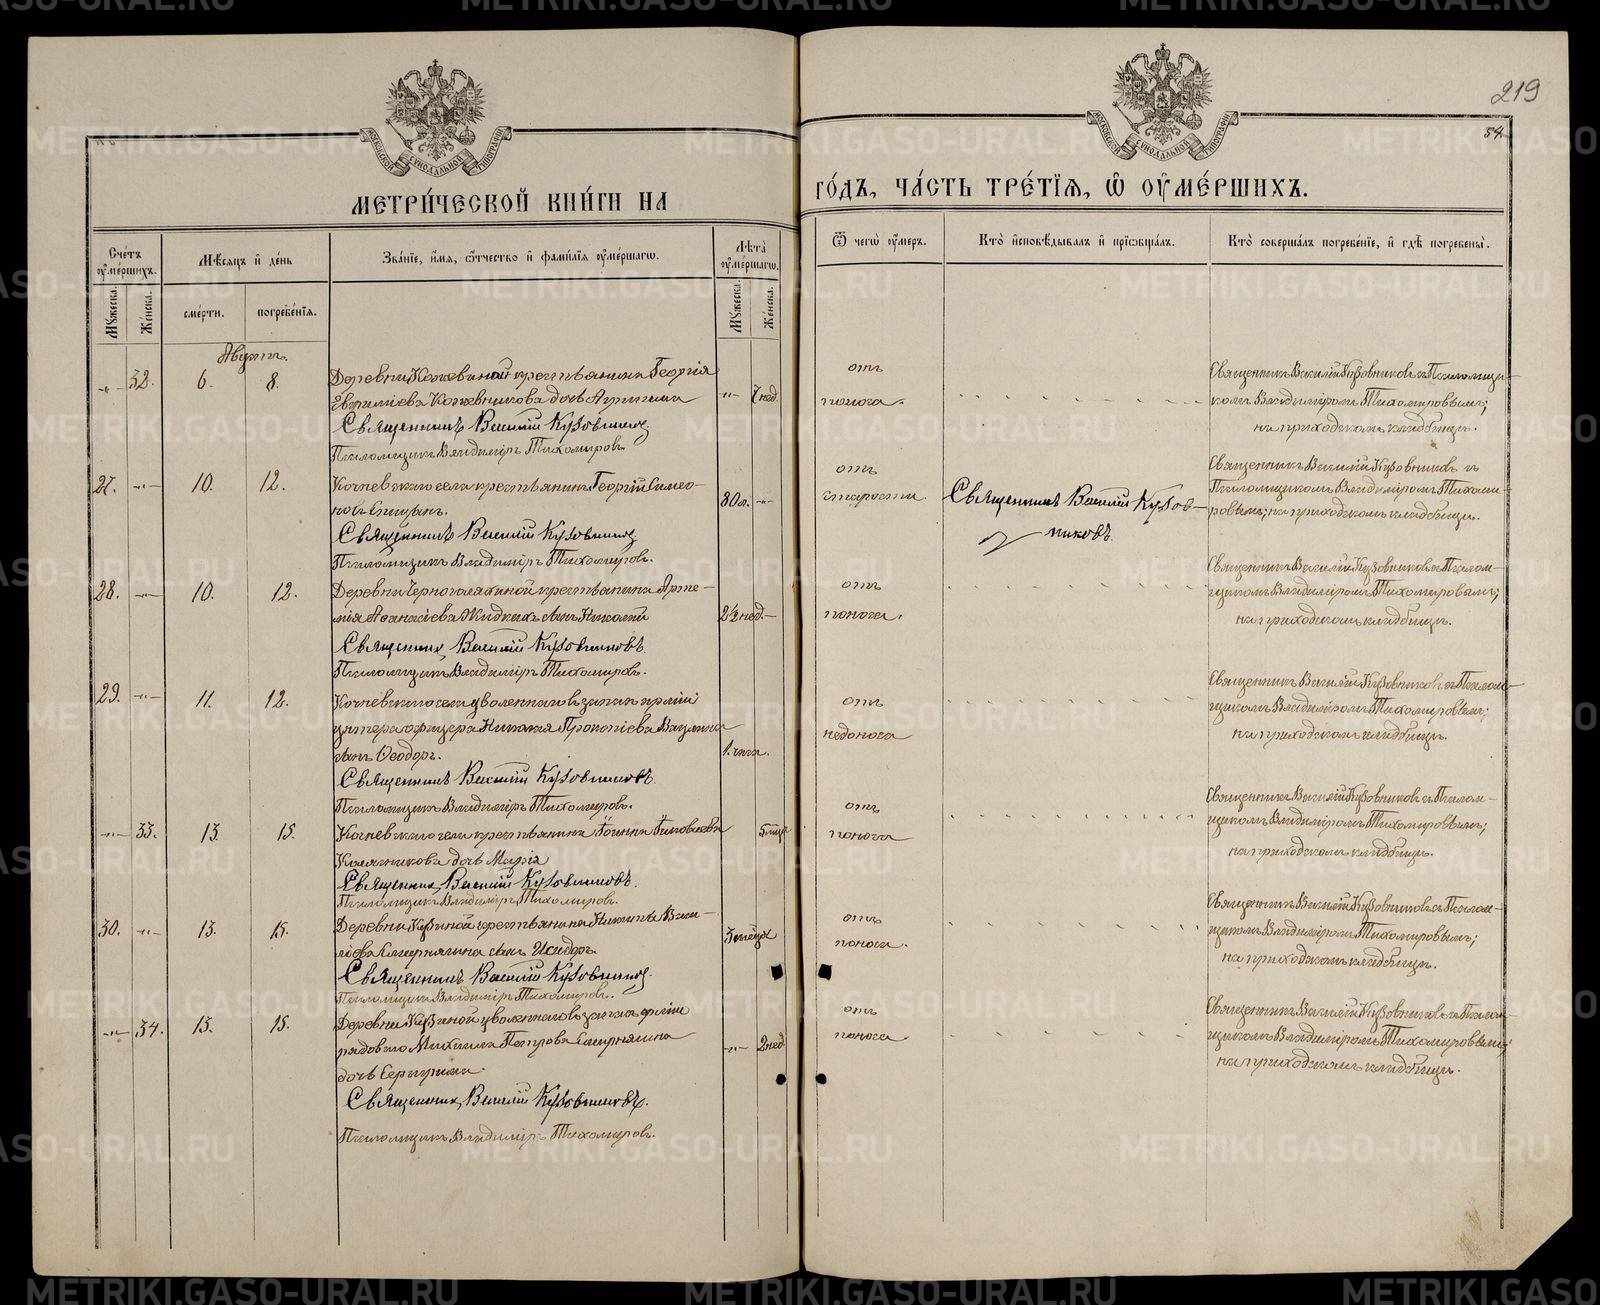 219
54
МЕТРИ́ЧЕСКОЙ КНИ́ГИ НА
ГО́ДЪ, ЧА́СТЬ ТРЕ́ТІѦ, Ѡ҆ ОУ҆МЕ́РШИХЪ.
Сче́тъ оу҆ме́ршихъ.
Мꙋ́жеска.
Же́нска.
Мѣ́сѧцъ и҆ де́нь
сме́рти.
погребе́нїѧ.
Зва́нїе, и҆́мѧ, ѻ҆́тчество и҆ фами́лїѧ оу҆ме́ршагѡ.
Лѣ́та оу҆ме́ршагѡ.
Мꙋ́жеска.
Же́нска.
Ѿ чегѡ̀ оу҆́меръ.
Кто̀ и҆сповѣ́дывалъ и҆ прїѡбща́лъ.
Кто̀ соверша́лъ погребе́нїе, и҆ гдѣ̀ погребены̀.
Августъ.
-„- 32. 6. 8.
Деревни Кожевиной крестьянина Георгія
Кожевникова дочь
Священникъ Василій Кузовниковъ.
Псаломщикъ Владиміръ Тихомировъ.
-„- 7 нед.
отъ
поноса.
Священникъ Василій Кузовниковъ съ Псаломщи-
комъ Владиміромъ Тихомировымъ;
на приходскомъ кладбищѣ.
27. -„- 10. 12.
Кочневскаго села крестьянинъ Георгій Симео-
новъ
Священникъ Василій Кузовниковъ.
Псаломщикъ Владиміръ Тихомировъ.
80 л. -„-
отъ
старости.
Священникъ Василій Кузов-
никовъ.
Священникъ Василій Кузовниковъ съ
Псаломщикомъ Владиміромъ Тихоми-
ровымъ; на приходскомъ кладбищѣ.
28. -„- 10. 12.
Деревни крестьянина Арте-
мія Аѳанасіева Жидкихъ сынъ Николай
Священникъ Василій Кузовниковъ.
Псаломщикъ Владиміръ Тихомировъ.
2½ нед. -
отъ
поноса.
Священникъ Василій Кузовниковъ съ Псалом-
щикомъ Владиміромъ Тихомировымъ;
на приходскомъ кладбищѣ.
29. -„- 11. 12.
Кочневскаго села уволеннаго въ запасъ арміи
унтеръ офицера Николая Прокопіева
сынъ Ѳеодоръ.
Священникъ Василій Кузовниковъ.
Псаломщикъ Владиміръ Тихомировъ.
1. часа.
отъ
недоноса
Священникъ Василій Кузовниковъ съ Псалом-
щикомъ Владиміромъ Тихомировымъ;
на приходскомъ кладбищѣ.
-„- 33. 13. 15.
Кочневскаго села крестьянина Іоанна
дочь Марія
Священникъ Василій Кузовниковъ.
Псаломщикъ Владиміръ Тихомировъ.
отъ
поноса
Священникъ Василій Кузовниковъ съ Псалом-
щикомъ Владиміромъ Тихомировымъ;
на приходскомъ кладбищѣ.
30. -„- 13. 15.
Деревни Кузиной крестьянина Никиты Васи-
сынъ Исидоръ
Священникъ Василій Кузовниковъ.
Псаломщикъ Владиміръ Тихомировъ.
3 мѣсяца
отъ
поноса.
Священникъ Василій Кузовниковъ съ Псалом-
щикомъ Владиміромъ Тихомировымъ;
на приходскомъ кладбищѣ.
-„- 34. 13. 15.
Деревни Кузиной уволеннаго въ запасъ арміи
рядового Михаила Петрова Смирнягина
дочь
Священникъ Василій Кузовниковъ.
Псаломщикъ Владиміръ Тихомировъ.
-„- 2 нед.
отъ
поноса.
Священникъ Василій Кузовниковъ съ Псалом-
щикомъ Владиміромъ Тихомировымъ;
на приходскомъ кладбищѣ.
METRIKI.GASO-URAL.RU